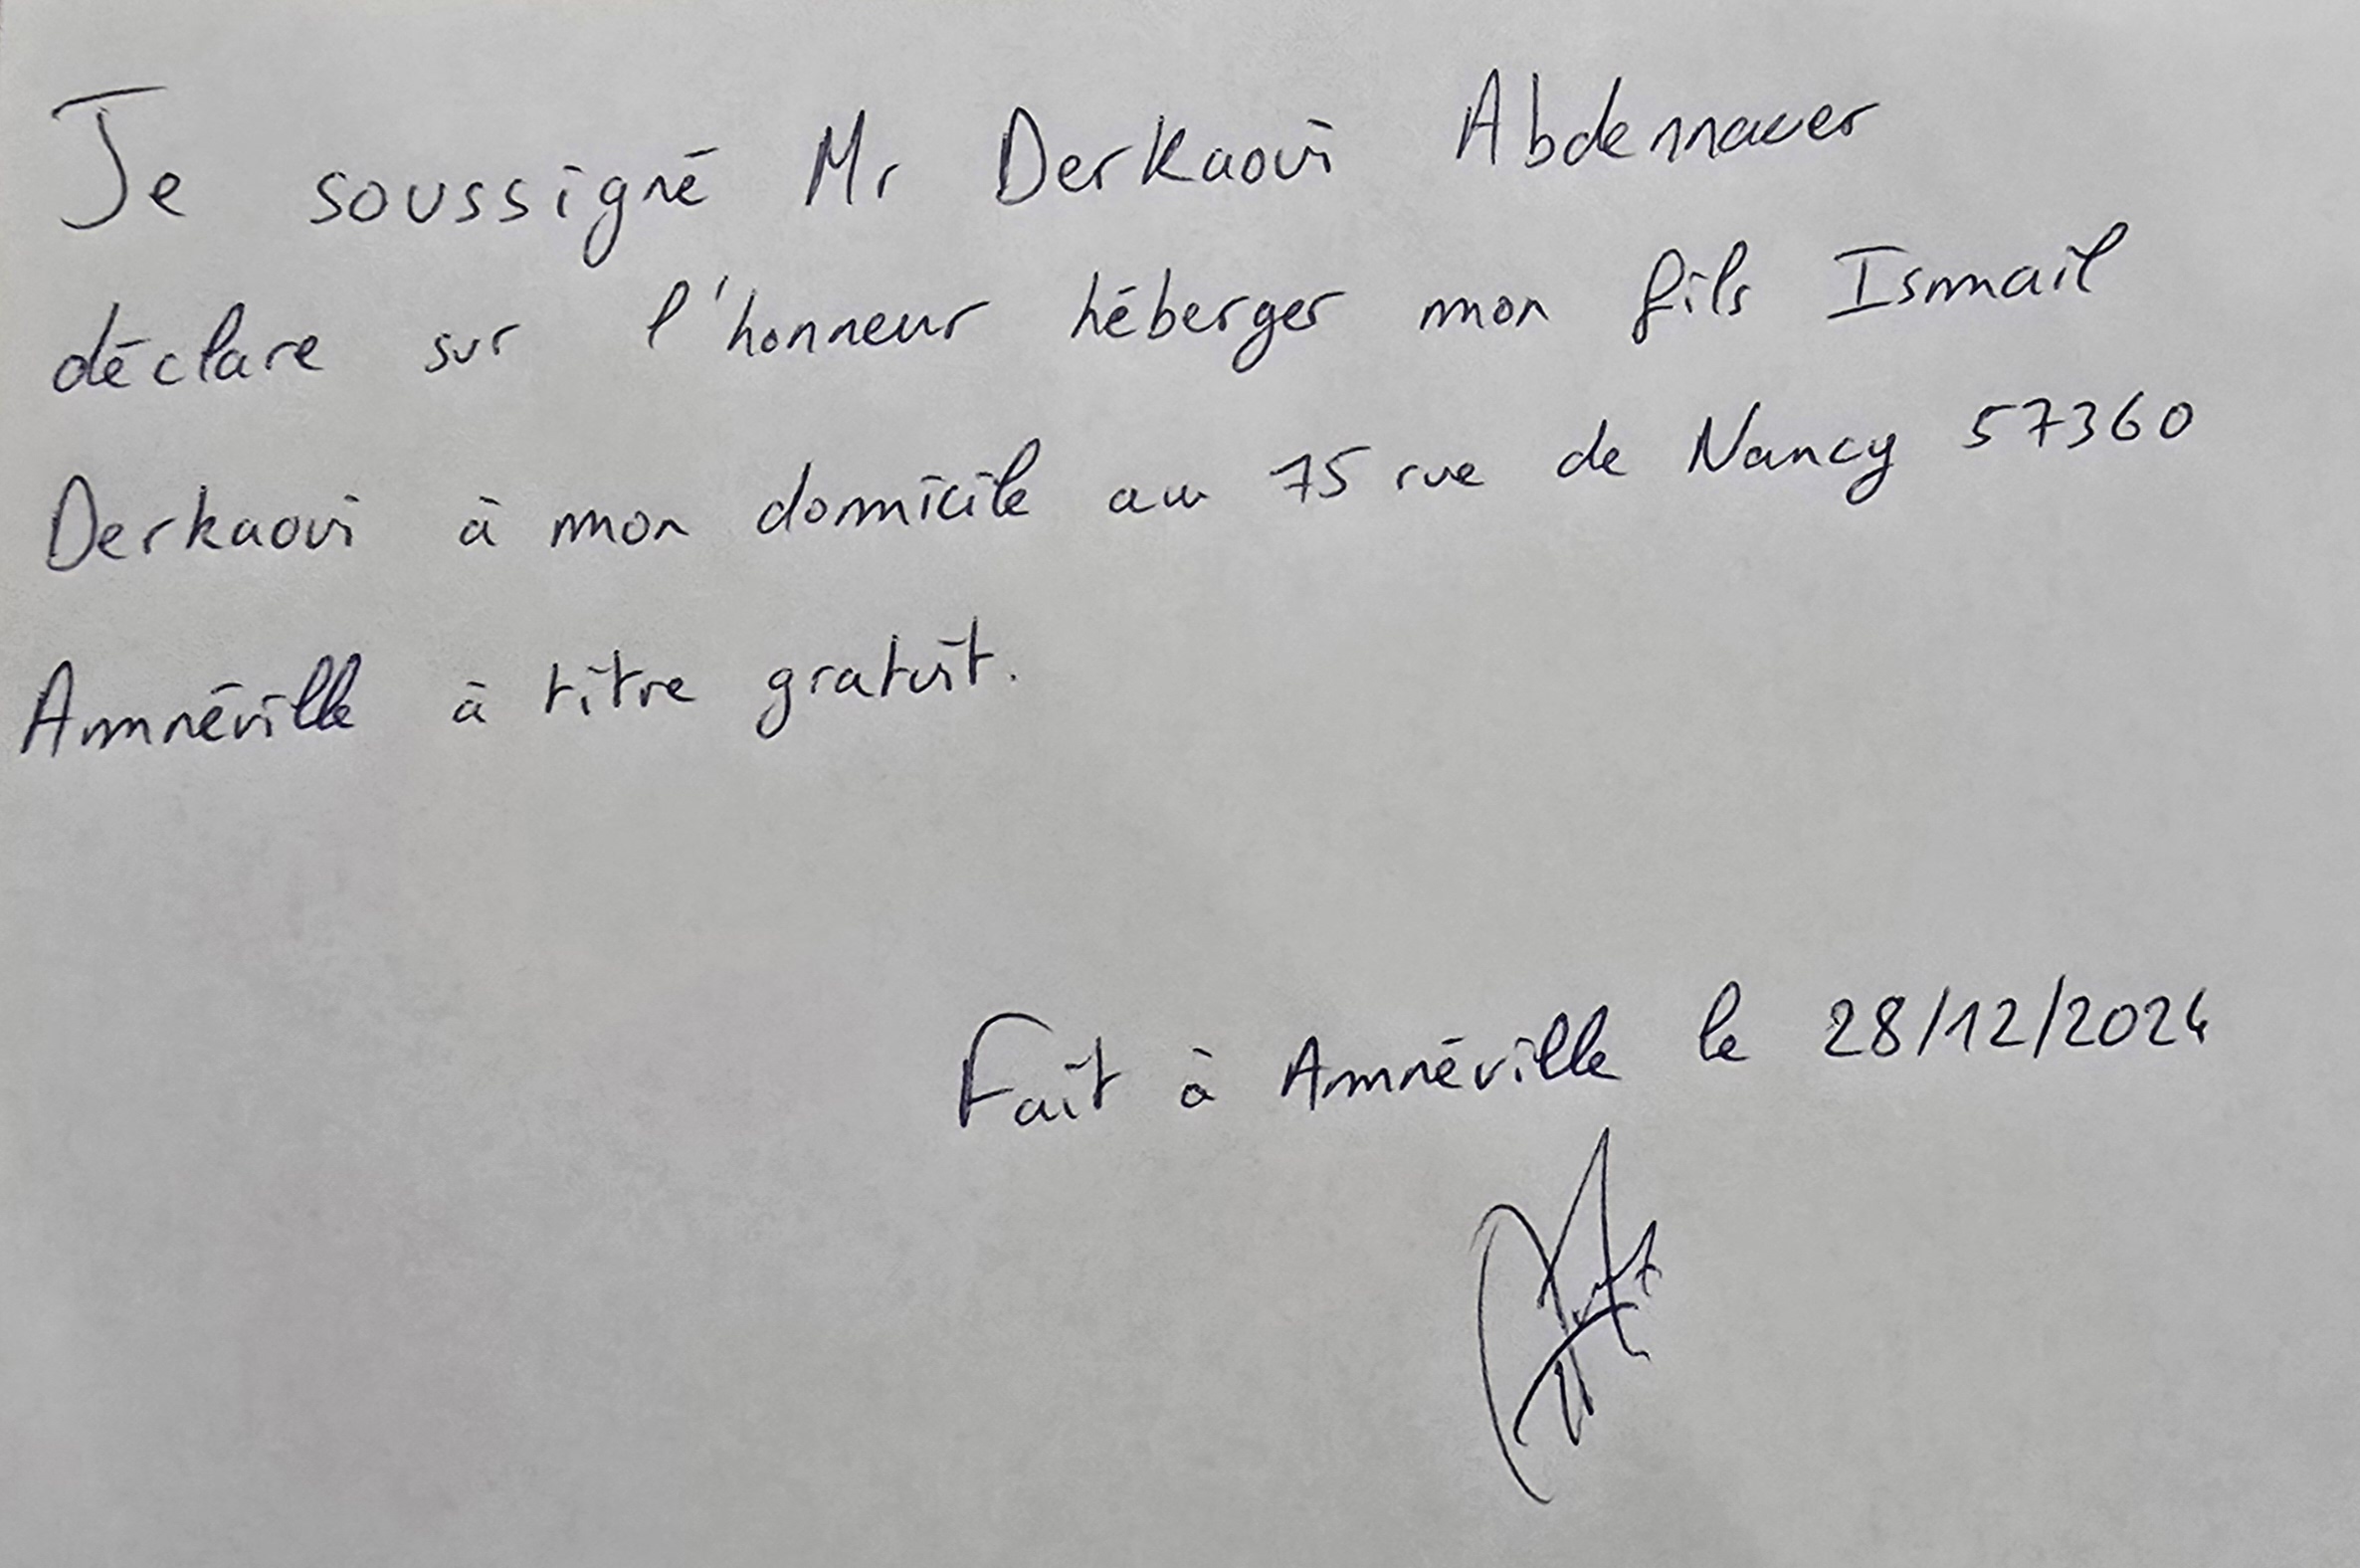 Je soussigné Mr Derkaoui Abdennacer
déclare sur l'honneur héberger mon fils Ismail
Derkaoui à mon domicile au 75 rue de Nancy 57360
Amnéville à titre gratuit.
Fait à Amnéville le 28/12/2024